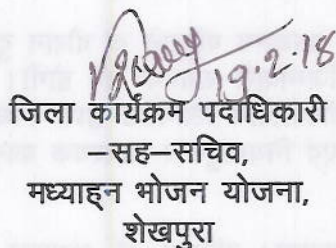 19.2.18
जिला कार्यक्रम पदाधिकारी
–सह–सचिव,
मध्याह्न भोजन योजना,
शेखपुरा